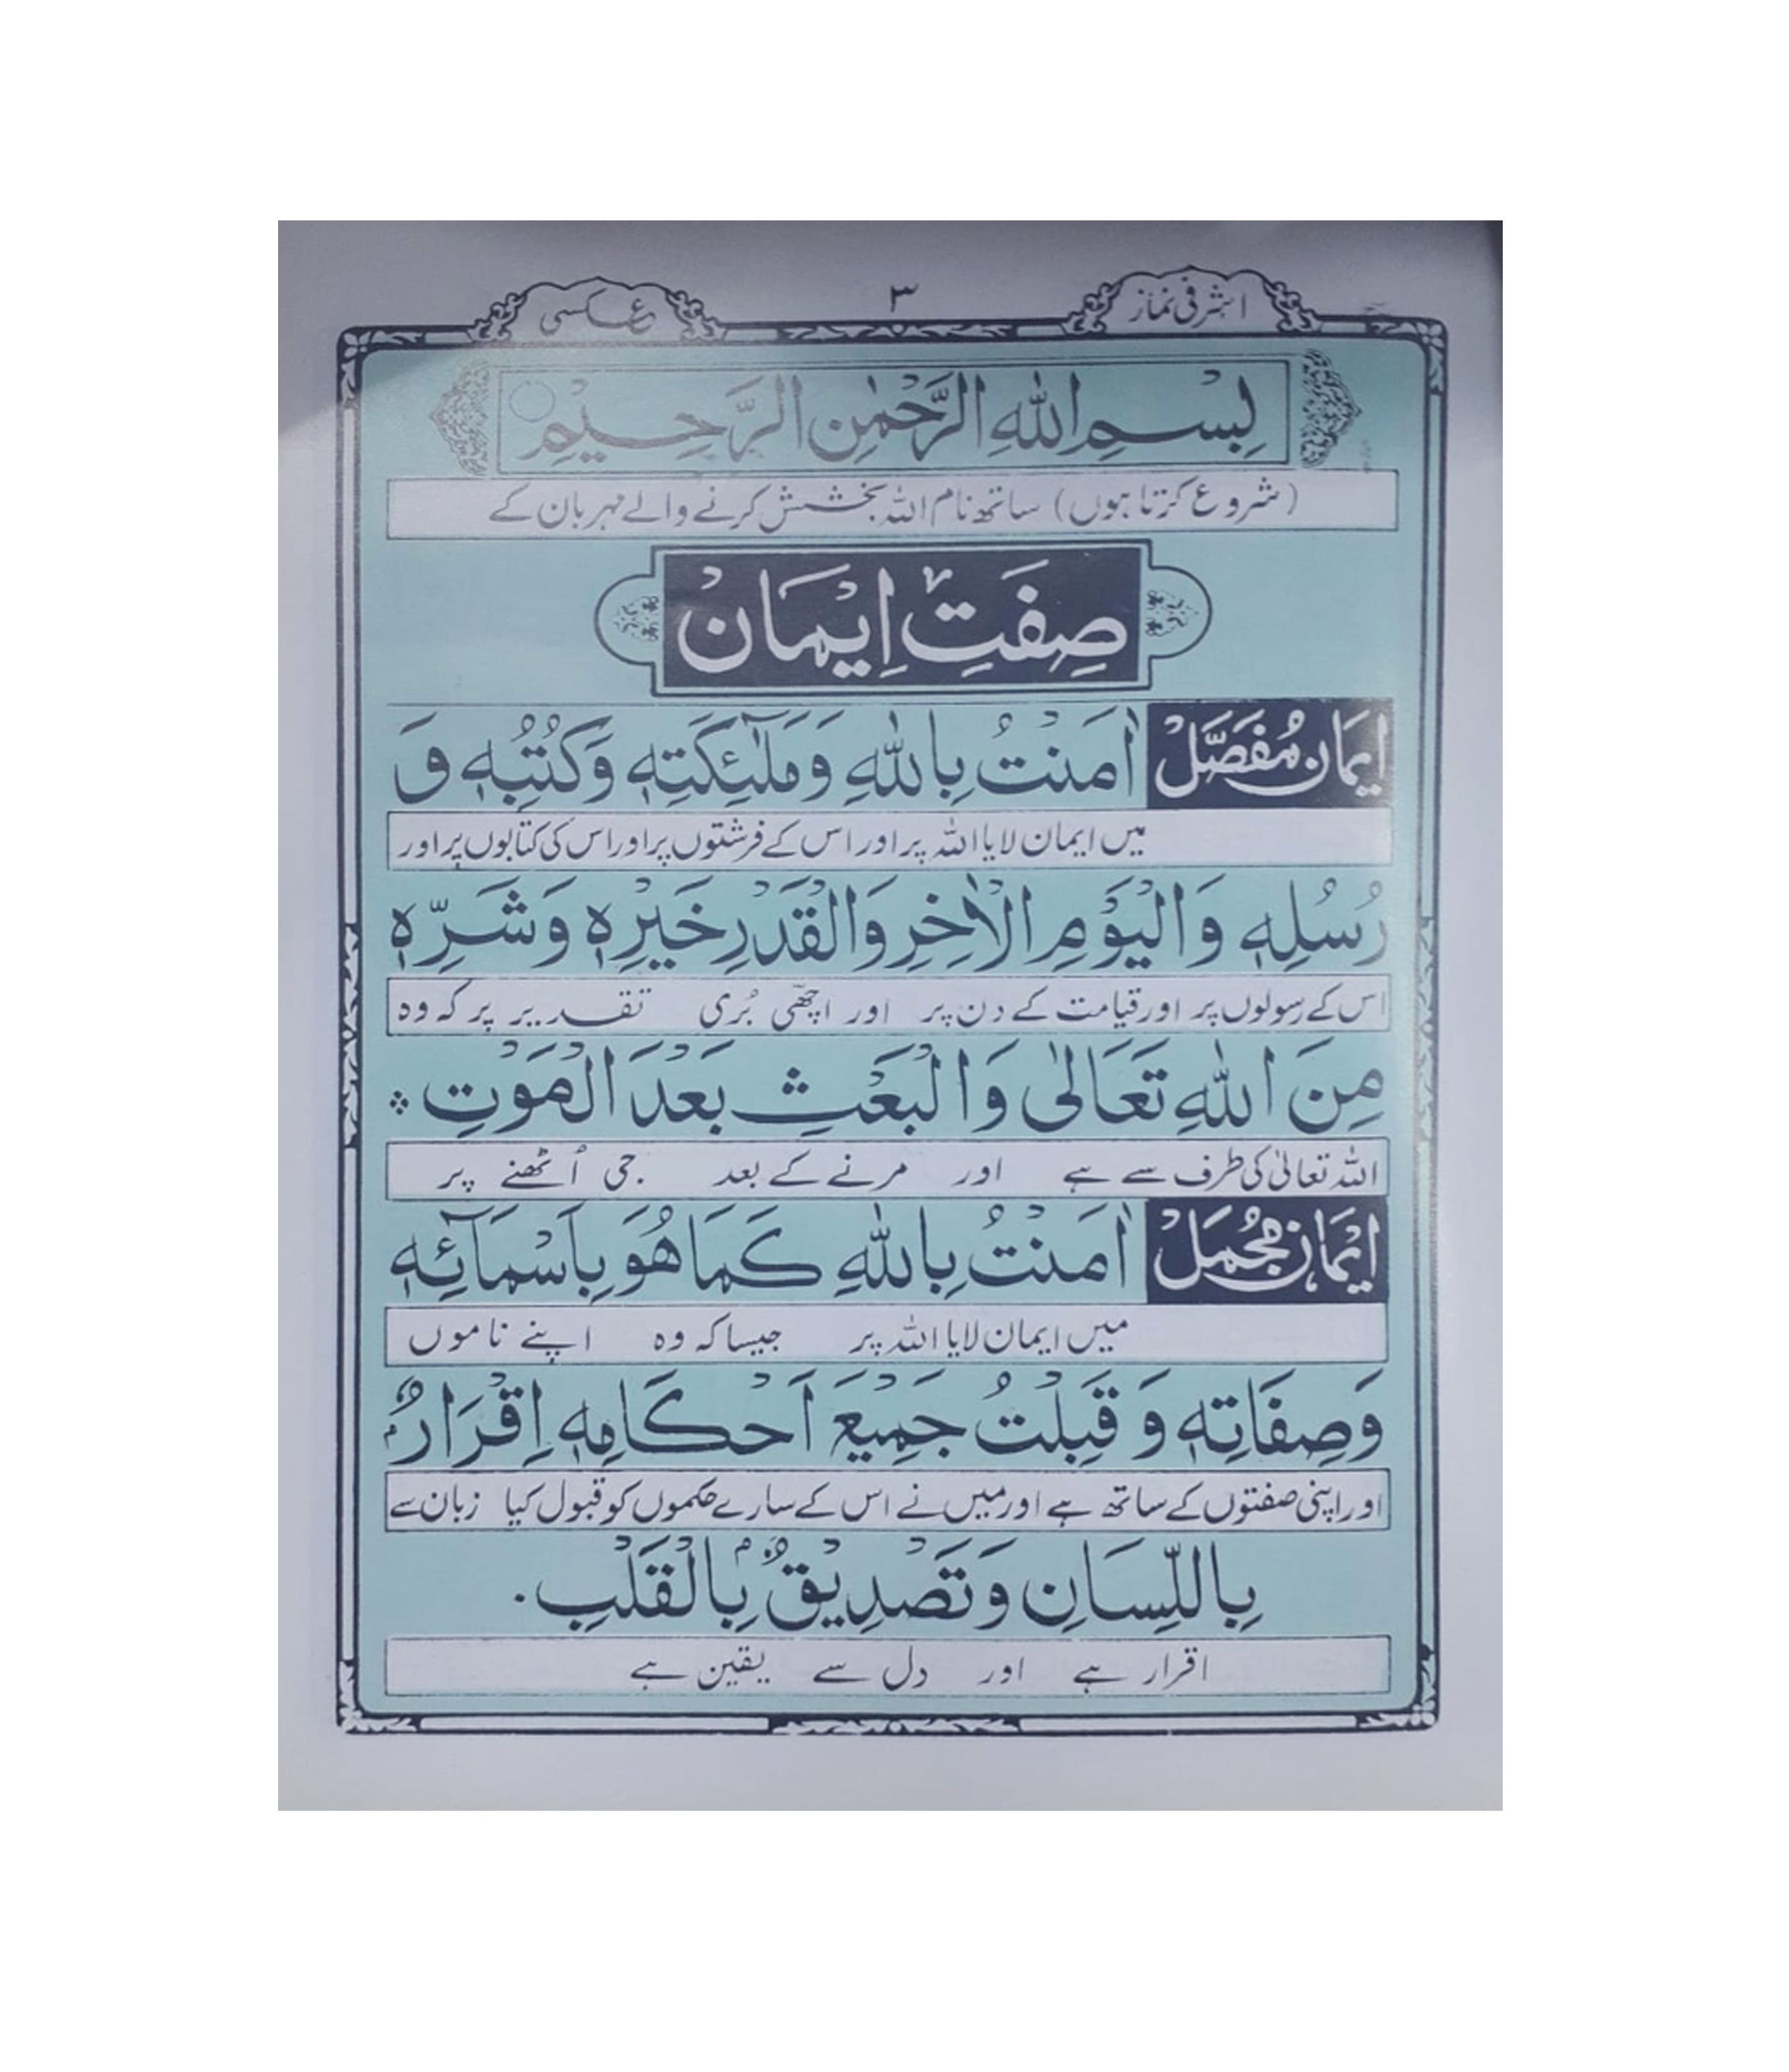 اشرفی نماز
۳
عکسی
بِسْمِ اللّٰهِ الرَّحْمٰنِ الرَّحِيْمِ
(شروع کرتا ہوں) ساتھ نام اللہ بخشش کرنے والے مہربان کے
صِفَتِ اِيْمَانْ
اِيْمَان مُفَصَّلْ اٰمَنْتُ بِاللّٰهِ وَمَلٰٓئِكَتِهٖ وَكُتُبِهٖ وَ
میں ایمان لایا اللہ پر اور اس کے فرشتوں پر اور اس کی کتابوں پر اور
رُسُلِهٖ وَالْيَوْمِ الْاٰخِرِ وَالْقَدْرِ خَيْرِهٖ وَشَرِّهٖ
اس کے رسولوں پر اور قیامت کے دن پر اور اچھی بُری تقدیر پر کہ وہ
مِنَ اللّٰهِ تَعَالٰى وَالْبَعْثِ بَعْدَ الْمَوْتِ
اللہ تعالیٰ کی طرف سے ہے اور مرنے کے بعد جی اُٹھنے پر
اِيْمَان مُجْمَلْ اٰمَنْتُ بِاللّٰهِ كَمَا هُوَ بِاَسْمَآئِهٖ
میں ایمان لایا اللہ پر جیسا کہ وہ اپنے ناموں
وَصِفَاتِهٖ وَ قَبِلْتُ جَمِيْعَ اَحْكَامِهٖ اِقْرَارٌۢ
اور اپنی صفتوں کے ساتھ ہے اور میں نے اس کے سارے حکموں کو قبول کیا زبان سے
بِاللِّسَانِ وَتَصْدِيْقٌۢ بِالْقَلْبِ.
اقرار ہے اور دل سے یقین ہے